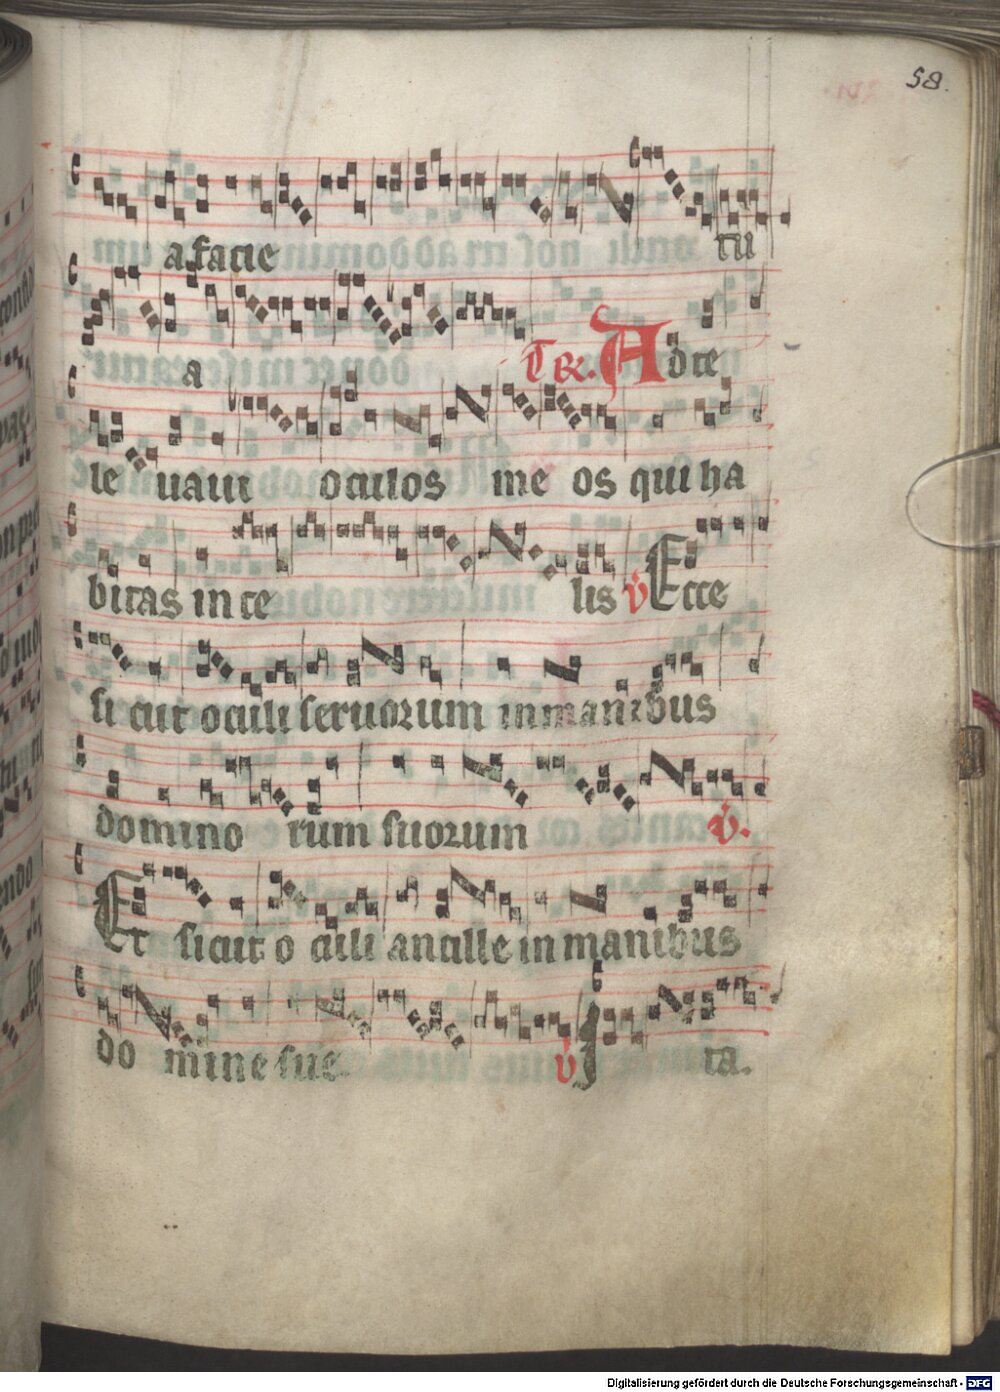 58.
a facie tu
a Tr. Ad te
le uaui oculos me os qui ha
bitas in ce lis v Ecce
si cut oculi seruorum in manibus
domino rum suorum v.
Et sicut o culi ancille in manibus
do mine sue. v I ta.
Digitalisierung gefördert durch die Deutsche Forschungsgemeinschaft - DFG